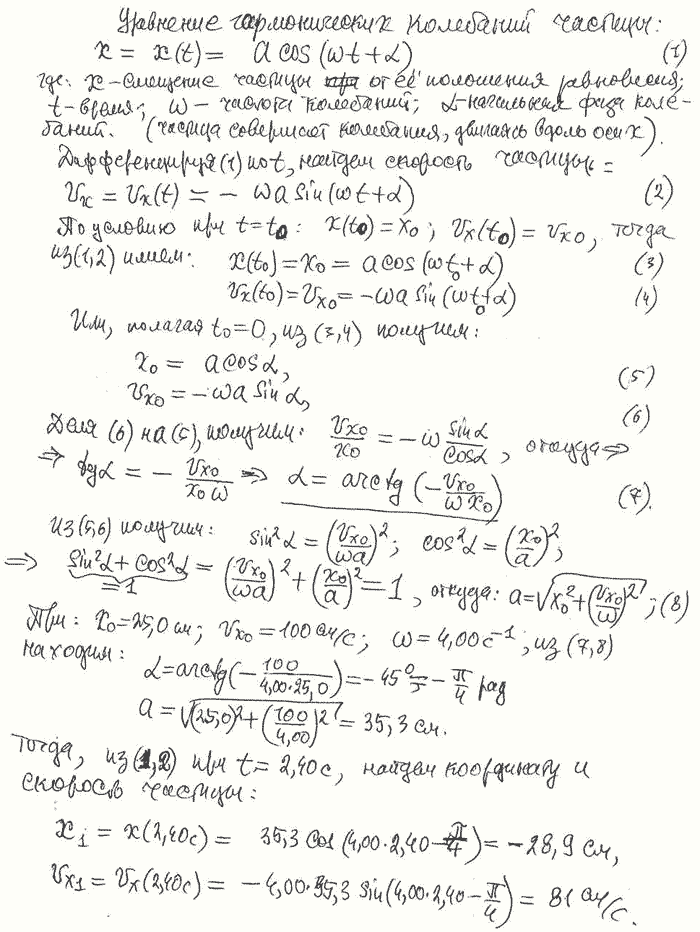 Уравнение гармонических колебаний частицы:
x = x(t) = a cos (ωt + α) (1)
где: x - смещение частицы от её положения равновесия;
t - время; ω - частота колебаний; α - начальная фаза коле-
баний. (частица совершает колебания, двигаясь вдоль оси x).
Дифференцируя (1) по t, найдем скорость частицы:
Vx = Vx(t) = - ωa sin (ωt + α) (2)
По условию при t = t₀ : x(t₀) = x₀ ; Vx(t₀) = Vx₀, тогда
из (1,2) имеем: x(t₀) = x₀ = a cos (ωt₀ + α) (3)
Vx(t₀) = Vx₀ = -ωa sin (ωt₀ + α) (4)
Или, полагая t₀ = 0, из (3,4) получим:
x₀ = a cos α, (5)
Vx₀ = -ωa sin α, (6)
Деля (6) на (5), получим: Vx₀/x₀ = -ω sin α/cos α, откуда ⇒
⇒ tg α = - Vx₀/(x₀ω) ⇒ α = arctg (-Vx₀/(ωx₀)) (7).
Из (5,6) получим: sin²α = (Vx₀/(ωa))²; cos²α = (x₀/a)²;
⇒ sin²α + cos²α = (Vx₀/(ωa))² + (x₀/a)² = 1, откуда: a = √(x₀² + (Vx₀/ω)²); (8)
= 1
При: x₀ = 25,0 см; Vx₀ = 100 см/с; ω = 4,00 с⁻¹, из (7,8)
находим:
α = arctg (- 100/(4,00·25,0)) = -45° = - π/4 рад
a = √((25,0)² + (100/4,00)²) = 35,3 см.
Тогда, из (1,2) при t = 2,40 с, найдем координату и
скорость частицы:
x₁ = x(2,40с) = 35,3 cos (4,00·2,40 - π/4) = -28,9 см,
Vx₁ = Vx(2,40с) = -4,00·35,3 sin(4,00·2,40 - π/4) = 81 см/с.